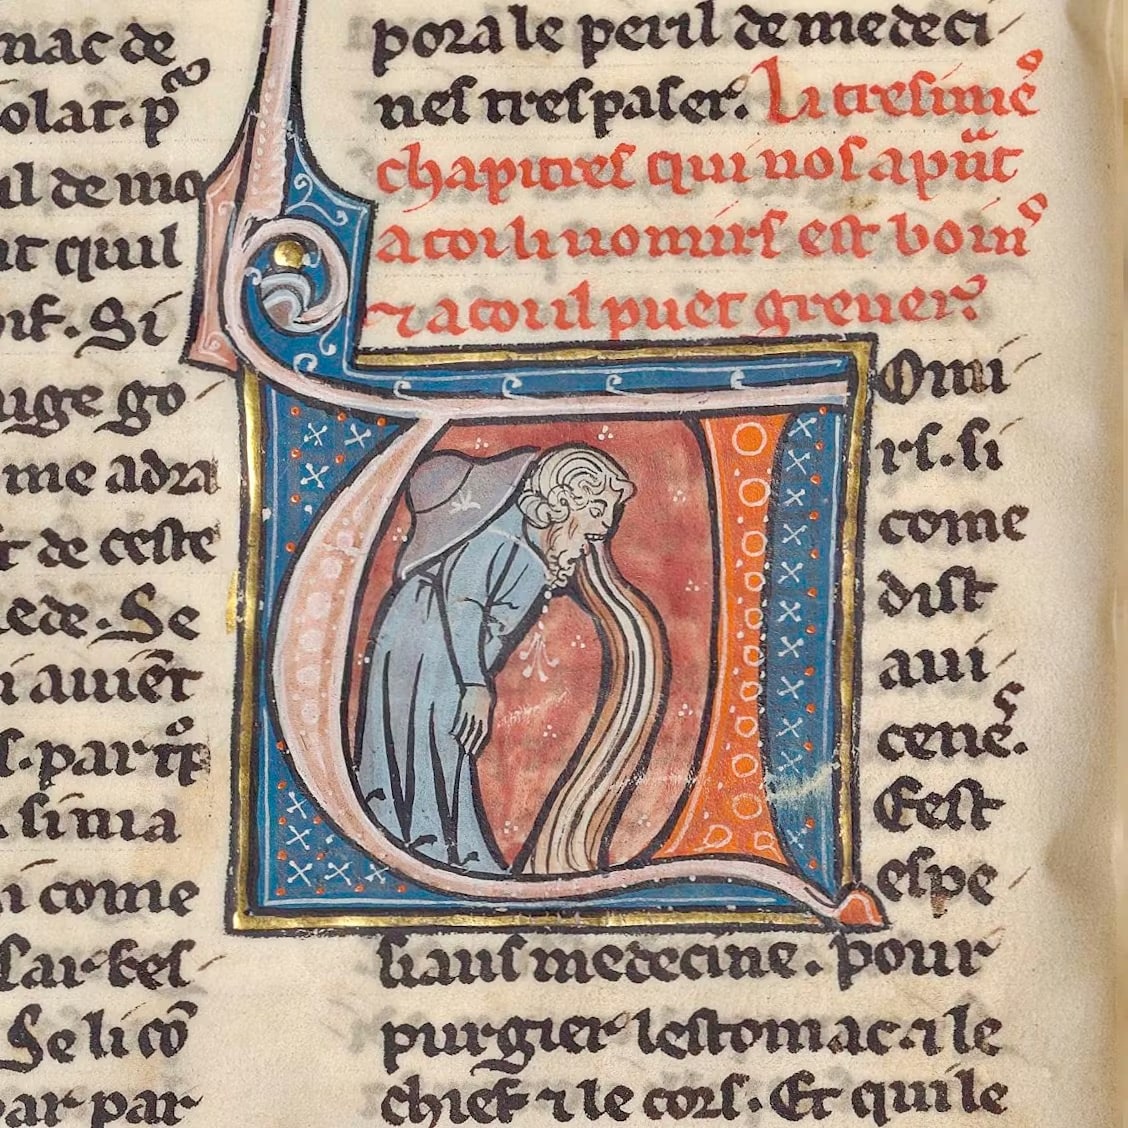 mac de
olat. p
il de mo
nt quil
oit. Si
uge go
me adra
t de ceste
iede. Se
i auiēt
s. par tp̄
sinia
i come
sar kes
Se li cō
ar par
porale peril de medeci
nes trespaser. La tresime
chapitres qui nos aprāt
a coi li uomirs est boin
⁊ a coi il puet greuer.
Omi
rs. si
come
dist
aui
cene.
Eest
espe
siaus medecine. pour
purgier lestomac. ⁊ le
chief ⁊ le cors. Et qui le